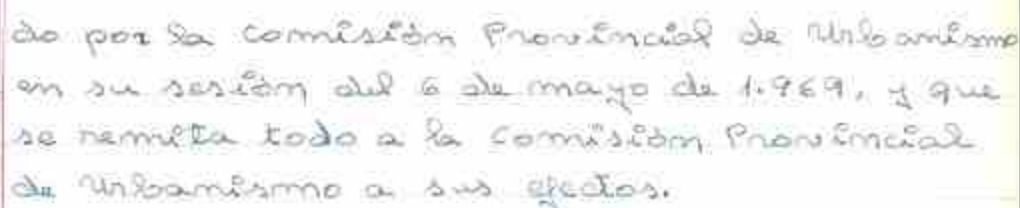 do por la Comisión Provincial de Urbanismo
en su sesión del 6 de mayo de 1.969, y que
se remita todo a la Comisión Provincial
de Urbanismo a sus efectos.